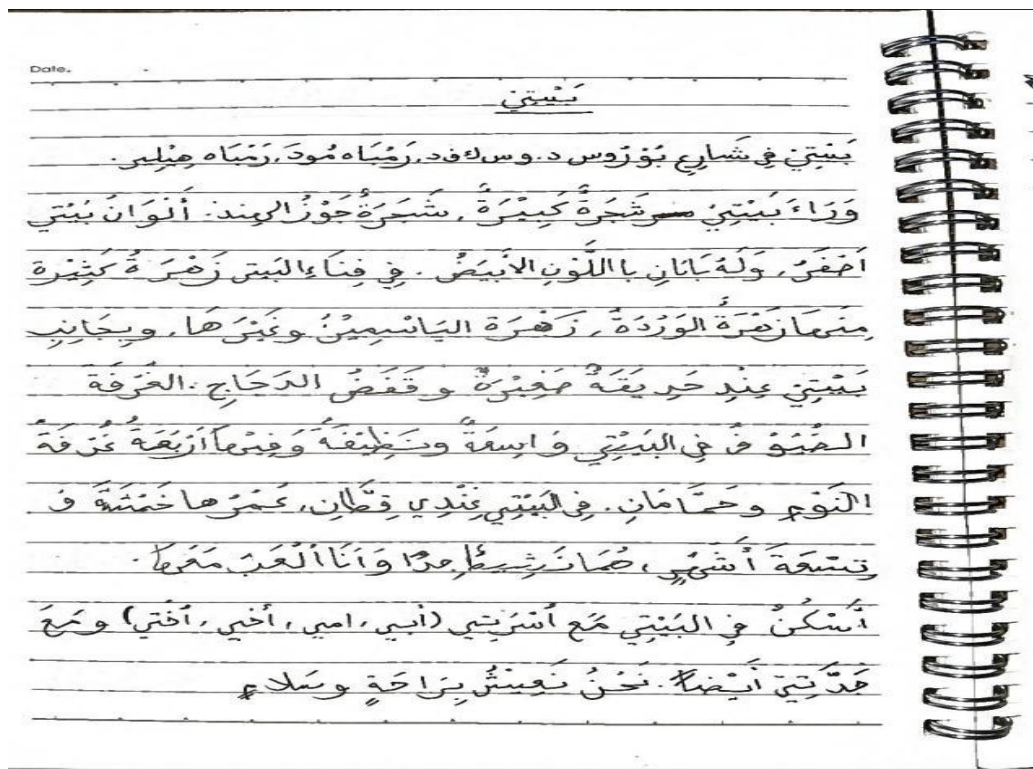 Date.
بَيْتِيْ
بَيْتِيْ فِي شَارِعِ بُوْرُوس د.و س ك ف د، رَمْبَاه مُودَ، رَمْبَاه هِيْلِير.
وَرَاءَ بَيْتِيْ شَجَرَةٌ كَبِيْرَةٌ، شَجَرَةُ جَوْزُ الهِند. أَلْوَانُ بَيْتِي
اَصْفَرُ، وَلَهُ بَابَانِ بِا اللَّوْنِ الاَبْيَضُ. فِي فِنَاءِ البَيتِ زَهْرَةٌ كَثِيْرَة
مِنهَا زَهْرَةُ الوَرْدَةُ، زَهْرَة اليَاسْمِيْنُ وغَيْرَهَا، وبِجَانِبِ
بَيْتِيْ عِنْدِ حَدِيقَةٌ صَغِيْرَةٌ وقَفَصُ الدَجَاجِ. الغُرْفَة
الضُيُوْفُ فِي البَيْتِي وَاسِعَةٌ ونَظِيْفَةٌ وَفِيْهَا اَرْبَعَةُ غُرْفَةً
النَوْمِ وحَمَّامَانِ. فِي البَيْتِي عِنْدِي قِطَّانِ، عُمْرُها خَمْسَة وَ
تِسْعَةَ أَشْهُرٍ، هُمَا نَشِيْطًا جِدًّا وَأَنَا أَلْعَبُ مَعَهَا.
أَسْكُنُ فِي البَيْتِي مَع اُسْرَتِي (أبي، امي، أخي، أختي) ومَعَ
جَدَّتِيْ أَيْضًا. نَحْنُ نَعِيْشُ بِرَاحَةٍ وسَلَامٍ